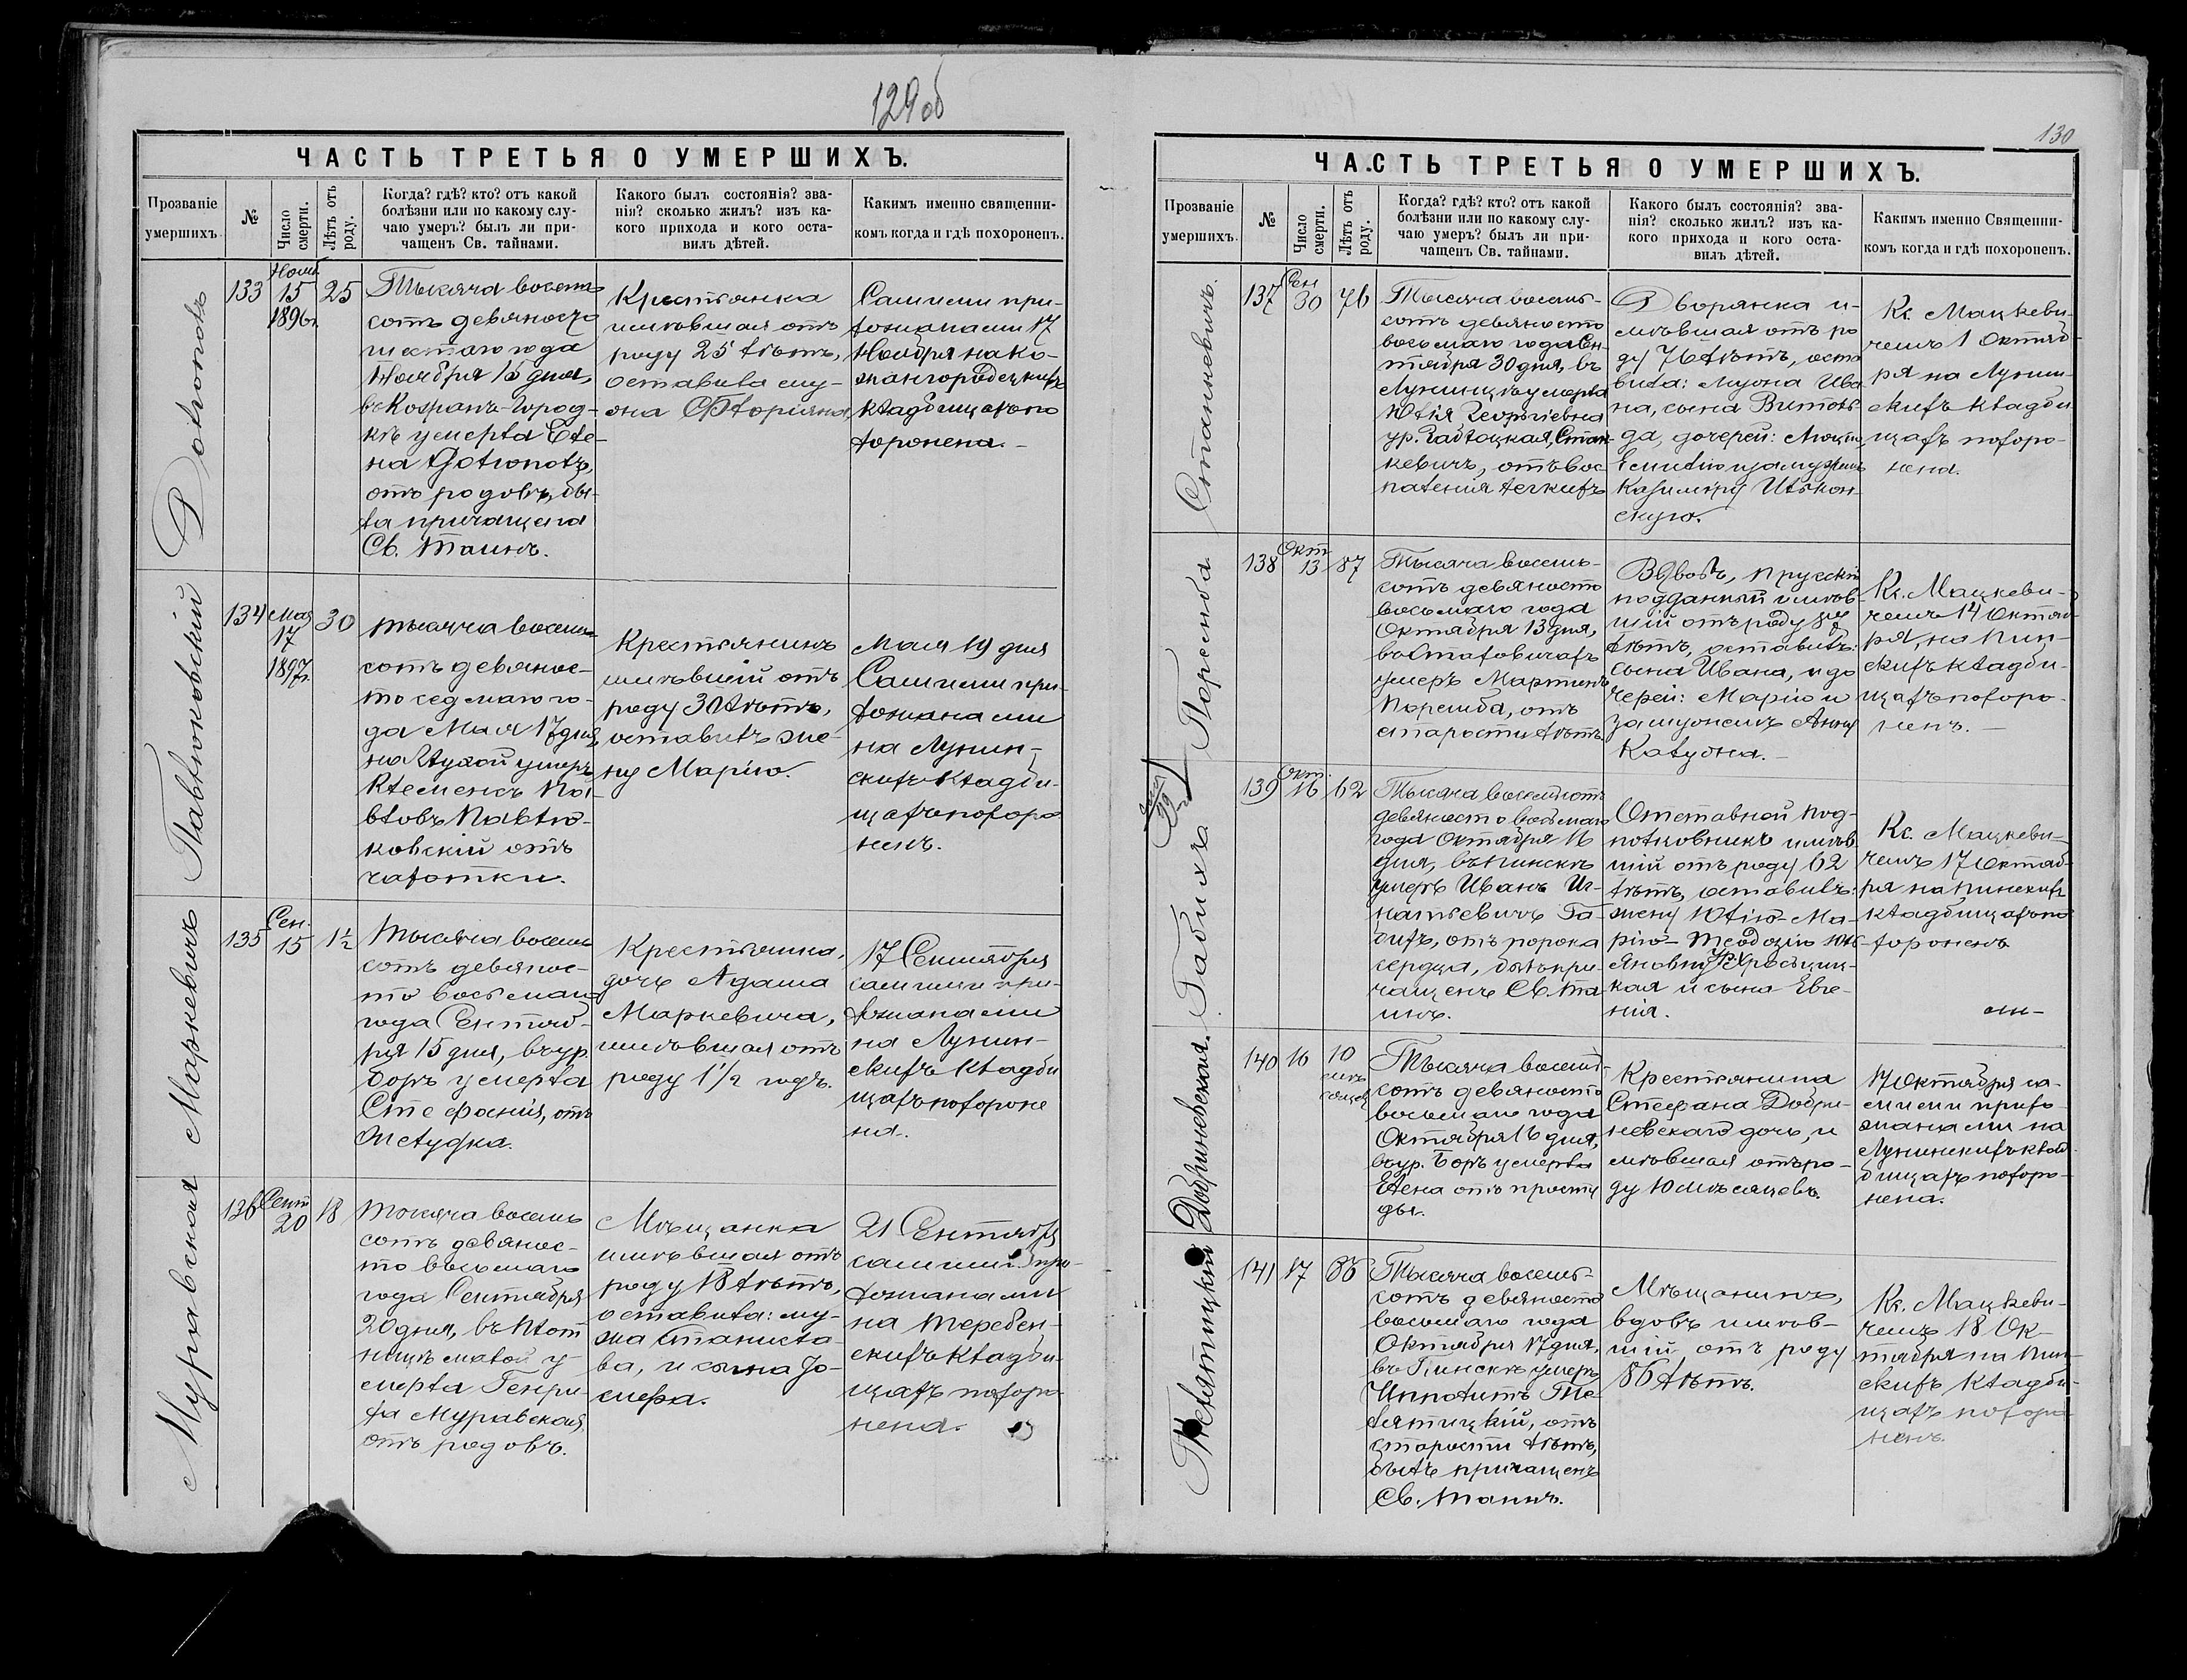 129 об
ЧАСТЬ ТРЕТЬЯ О УМЕРШИХЪ.
Прозваніе умершихъ.
№
Число смерти.
Лѣтъ отъ роду.
Когда? гдѣ? кто? отъ какой
болѣзни или по какому слу-
чаю умеръ? былъ ли при-
чащенъ Св. тайнами.
Какого былъ состоянія? зва-
нія? сколько жилъ? изъ ка-
кого прихода и кого оста-
вилъ дѣтей.
Какимъ именно священни-
комъ когда и гдѣ похороненъ.
133
15
1896г.
25
Тысяча восемь
сотъ девяносто
шестого года
Ноября 15 дня,
въ Кожанъ-Город-
кѣ умерла Еле-
на
отъ родовъ, бы-
ла причащена
Св. Таинъ.
Крестьянка
имѣвшая отъ
роду 25 лѣтъ,
оставила му-
жа Флоріана,
Самими при-
хожанами 17
Ноября на Ко-
жангородецкихъ
кладбищахъ по
хоронена.
Павлюковскій
134
Мая
17
1897г.
30
Тысяча восемь
сотъ девянос-
то седмаго го-
да Мая 17 дня,
умеръ
Клеменсъ Па-
вловъ Павлю-
ковскій отъ
чахотки.
Крестьянинъ
имѣвшій отъ
роду 30 лѣтъ,
оставилъ же-
ну Марію.
Мая 19 дня
Самими при-
хожанами
на Лунин-
скихъ кладби-
щахъ похоро
ненъ.
Маркевичъ
135
Сен.
15
1½
Тысяча восемь
сотъ девянос-
то восьмаго
года Сентяб-
ря 15 дня, въ ур.
Боръ умерла
Стефанія, отъ
желудка.
Крестьянка,
дочь Адама
Маркевича,
имѣвшая отъ
роду 1½ годъ.
17 Сентября
самими при-
хожанами
на Лунин-
скихъ кладби
щахъ похороне
на.
Муравская
136
Сент
20
18
Тысяча восемь
сотъ девянос-
то восьмаго
года Сентября
20 дня, въ Плот
ницѣ малой у-
мерла Генри-
ха Муравская,
отъ родовъ.
Мѣщанка
имѣвшая отъ
роду 18 лѣтъ,
оставила: му-
жа Станисла-
ва, и сына Іо-
сифа.
21 Сентября
самими при-
хожанами
на Теребен-
скихъ кладби-
щахъ похоро-
нена.
130
ЧАСТЬ ТРЕТЬЯ О УМЕРШИХЪ.
Прозваніе умершихъ.
№
Число смерти.
Лѣтъ отъ роду.
Когда? гдѣ? кто? отъ какой
болѣзни или по какому слу-
чаю умеръ? былъ ли при-
чащенъ Св. тайнами.
Какого былъ состоянія? зва-
нія? сколько жилъ? изъ ка-
кого прихода и кого оста-
вилъ дѣтей.
Какимъ именно Священни-
комъ когда и гдѣ похороненъ.
137
Сен
30
76
Тысяча восемь-
сотъ девяносто
восьмаго года Сен-
тября 30 дня, въ
Лунинцѣ умерла
Юлія Георгіевна
ур.
отъ вос
паленія легкихъ
Дворянка и-
мѣвшая отъ ро
ду 76 лѣтъ, оста
вила: мужа Ива
на, сына Витоль
да, дочерей:
Емилію замужемъ
Казиміру
Кс. Мацкеви-
чемъ 1 Октяб-
ря на Лунин-
скихъ кладби
щахъ похоро-
нена.
Поремба
138
Окт
13
87
Тысяча восемь-
сотъ девяносто
восьмаго года
Октября 13 дня,
умеръ Мартинъ
Поремба, отъ
старости лѣтъ.
Вдовъ, прусскій
подданный имѣв-
шій отъ роду 87
лѣтъ, оставилъ:
сына Ивана, и до
черей: Марію и
замужемъ Анну
Калужна.
Кс. Мацкеви-
чемъ 14 Октяб-
ря, на Пин-
скихъ кладби-
щахъ похоро-
ненъ.
Габихъ
139
Окт.
16
62
Тысяча восемьсотъ
девяносто восьмаго
года Октября 16
дня, въ Пинскѣ
умеръ Иванъ Иг-
натьевичъ Га-
бихъ, отъ порока
сердца, былъ при-
чащенъ Св. Та
инъ.
Отставной под-
полковникъ имѣв
шій отъ роду 62
лѣтъ, оставилъ:
жену Юлію-Ма-
рію-Теодозію
кая и сына Евге-
нія.
Кс. Мацкеви-
чемъ 17 Октяб-
ря на Пинскихъ
кладбищахъ по
хороненъ
Добриневская
140
16
10
Тысяча восемь
сотъ девяносто
восьмаго года
Октября 16 дня,
въ ур. Боръ умерла
Елена отъ просту
ды.
Крестьянина
Стефана Добри-
невскаго дочь, и
мѣвшая отъ ро-
ду 10 мѣсяцевъ.
17 Октября са-
мими прихо-
жанами на
Лунинскихъ клад
бищахъ похоро-
нена.
Телятицкій
141
17
86
Тысяча восемь-
сотъ девяносто
восьмаго года
Октября 17 дня,
въ Пинскѣ умеръ
Ипполитъ Те-
лятицкій, отъ
старости лѣтъ,
былъ причащенъ
Св. Таинъ.
Мѣщанинъ,
вдовъ имѣв-
шій отъ роду
86 лѣтъ.
Кс. Мацкеви-
чемъ 18 Ок-
тября на Пин-
скихъ кладби-
щахъ похоро
ненъ.